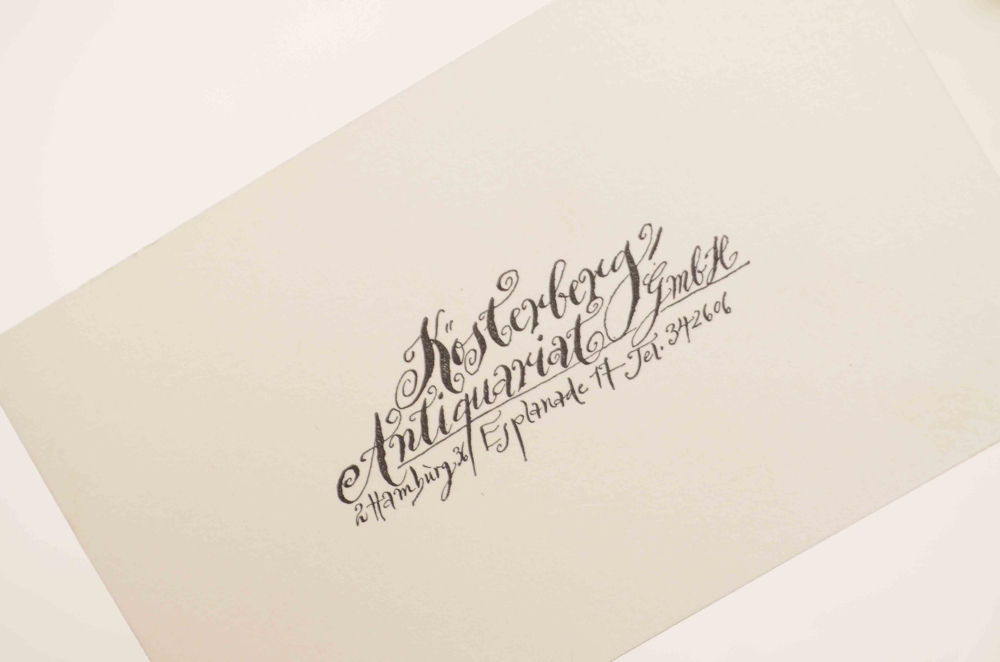 Kösterberg,
Antiquariat GmbH
2 Hamburg 36 Esplanade 17 Tel. 342606